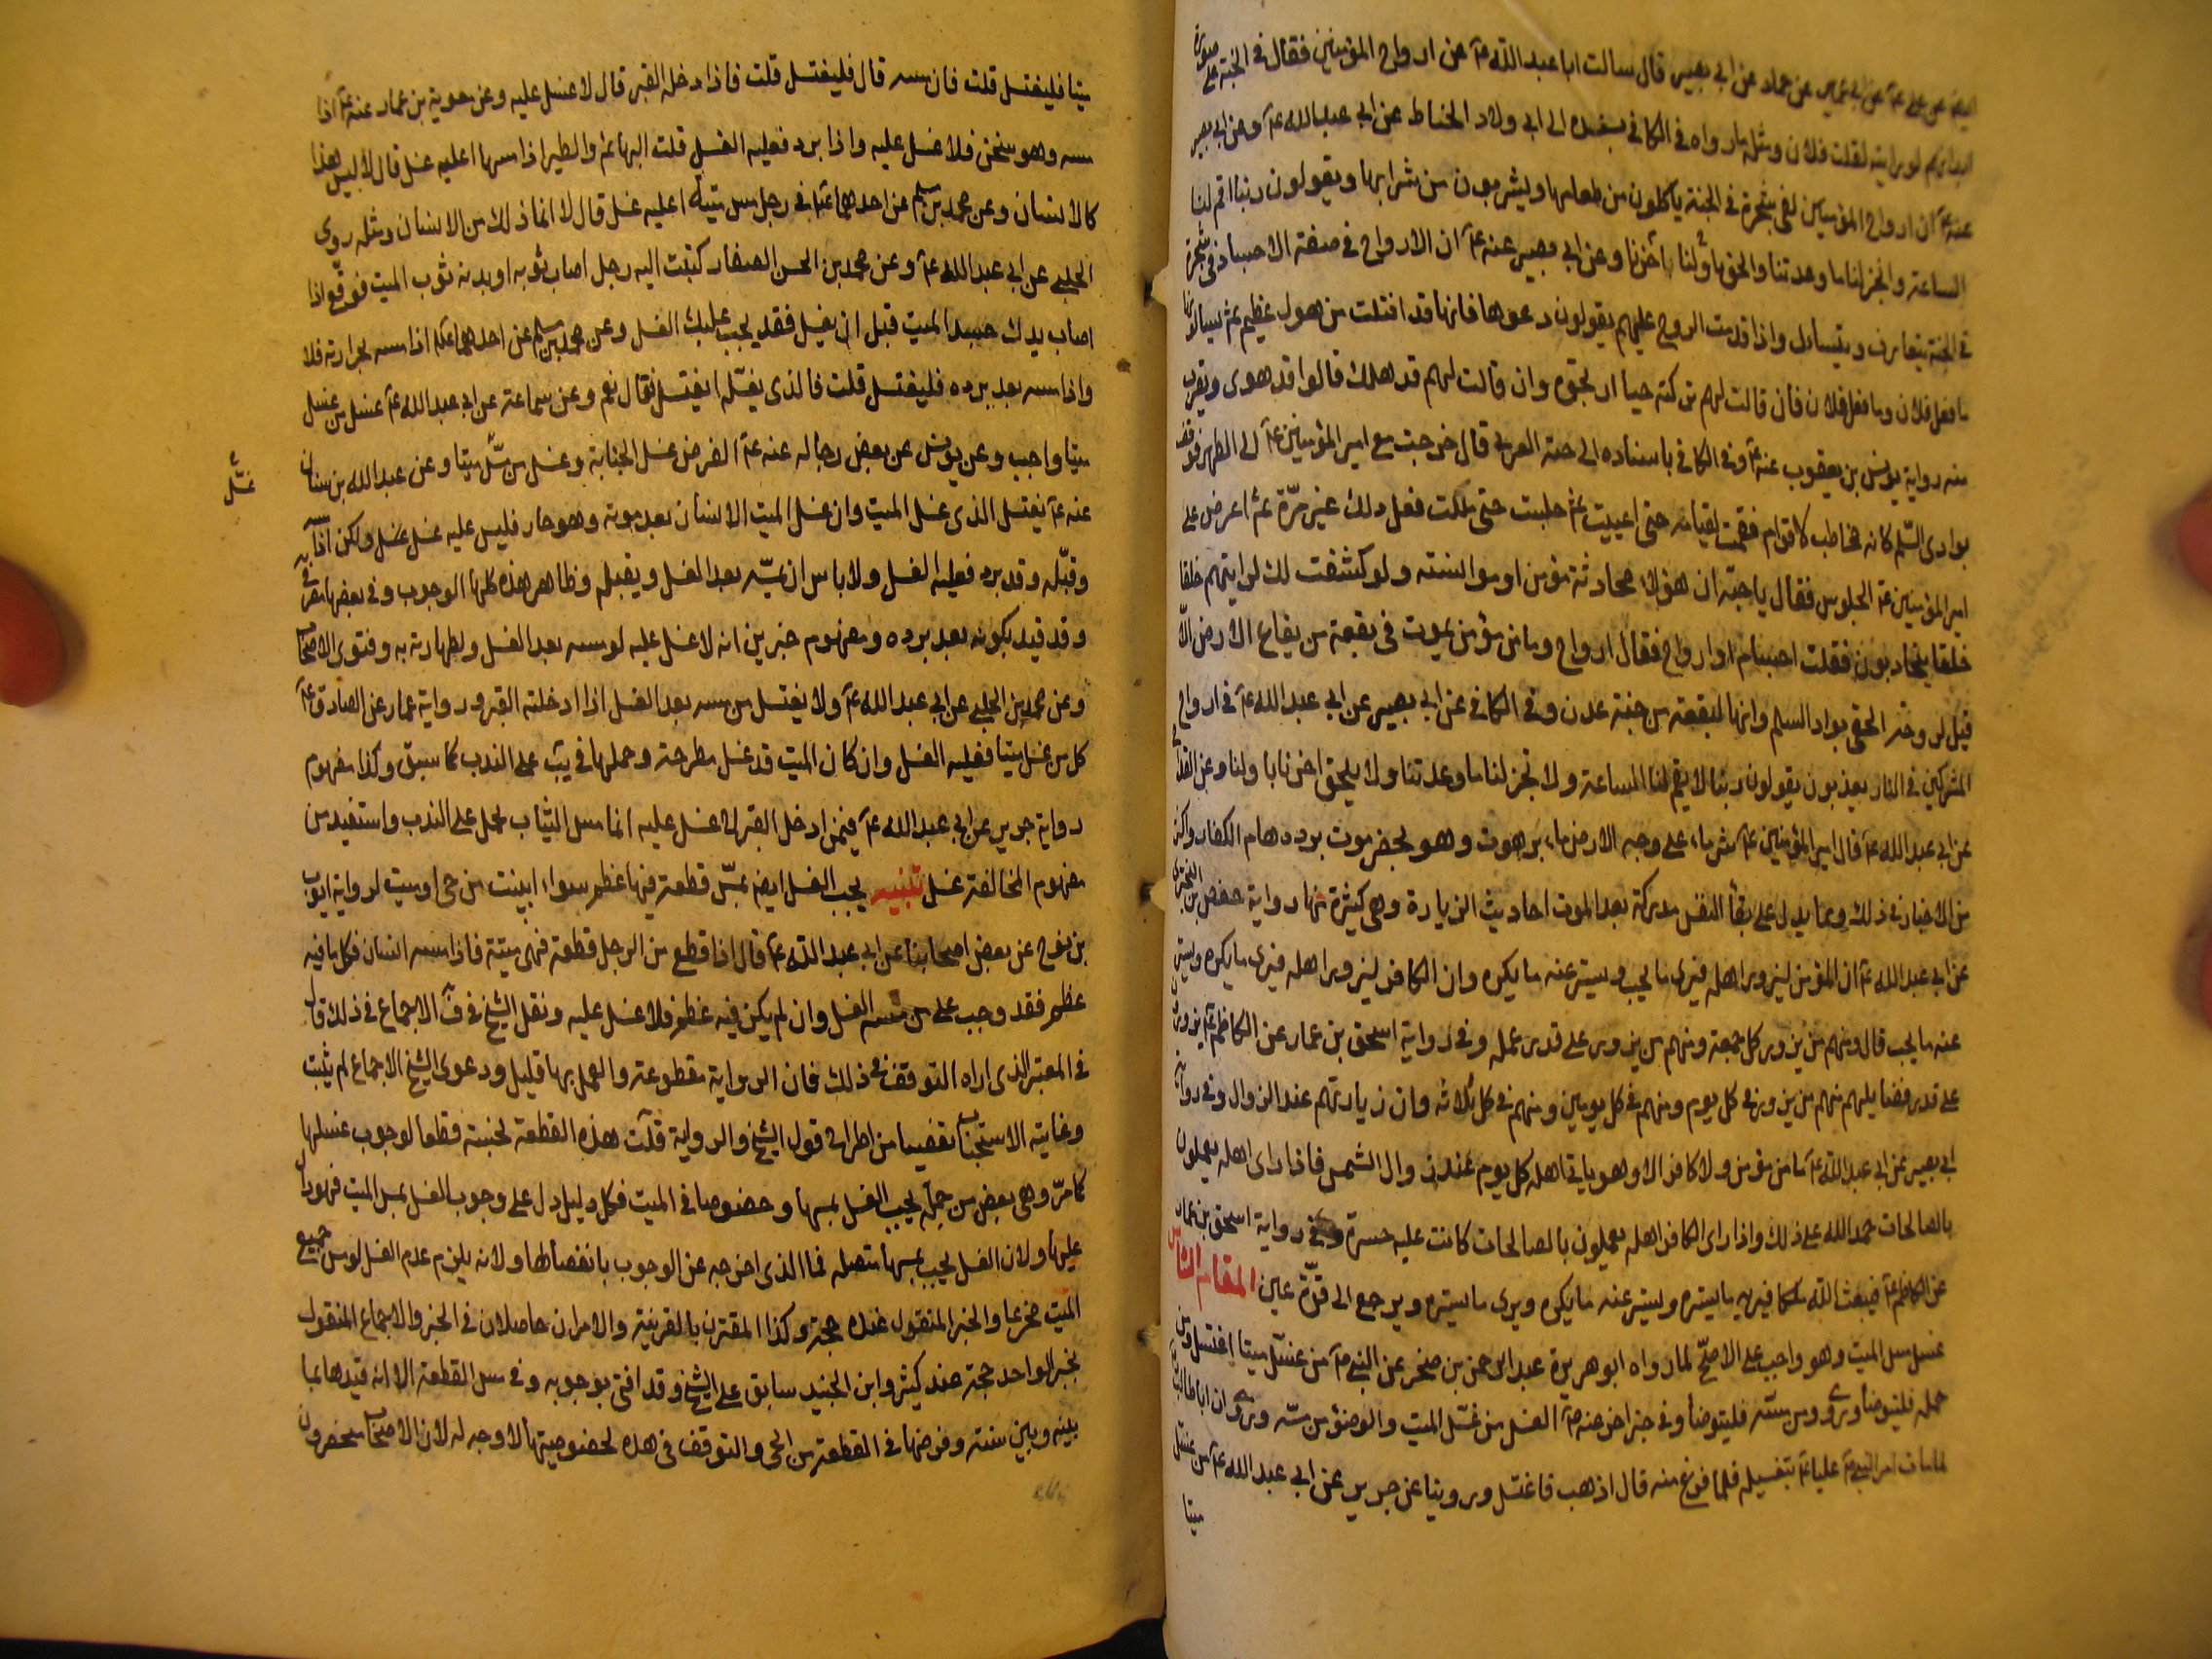 عن ابي بصير قال سالت ابا عبدالله عۤ عن ارواح المؤمنين فقال في الجنة على صورة
ابدانهم لو رايته لقلت فلان ومثله ما رواه في الكافي بسنده الى ابي ولاد الحناط عن ابي عبدالله عۤ وعن ابي بصير
عنه عۤ ان ارواح المؤمنين لفي شجرة في الجنة ياكلون من طعامها ويشربون من شرابها ويقولون ربنا اقم لنا
الساعة وانجز لنا ما وعدتنا والحق باولنا باخرنا وعن ابي بصير عنه عۤ ان الارواح في صفة الاجساد في شجرة
في الجنة يتعارف ويتسائل واذا قدمت الروح عليهم يقولون دعوها فانها قد افلتت من هول عظيم ثم يسالونها
ما فعل فلان وما فعل فلان فان قالت لهم تركته حيا ارتجوه وان قالت لهم قد هلك قالوا قد هوى ويقرب
منه رواية يونس بن يعقوب عنه عۤ وفي الكافي باسناده الى حبة العرني قال خرجت مع امير المؤمنين عۤ الى الظهر فوقف
بوادي السلم كانه مخاطب لاقوام فقمت لقيامه حتى اعييت ثم جلست حتى مللت فعل ذلك غير مرة ثم اعرض على
امير المؤمنين عۤ الجلوس فقال يا حبة ان هو الا محادثة مؤمن او موانسته ولو كشفت لك لرايتهم حلقا
حلقا يتحادثون فقلت اجسام او ارواح فقال ارواح وما من مؤمن يموت في بقعة من بقاع الارض الا
قيل لروحه الحقي بواد السلم وانها لبقعة من جنة عدن وفي الكافي عن ابي بصير عن ابي عبدالله عۤ في ارواح
المشركين في النار يعذبون يقولون ربنا لا تقم لنا الساعة ولا تنجز لنا ما وعدتنا ولا يلحق اخرنا باولنا وعن القداح
عن ابي عبدالله عۤ قال امير المؤمنين عۤ شر ماء على وجه الارض ماء برهوت وهو بحضرموت يرده هام الكفار واكثر
من الاخبار في ذلك ومما يدل على بقأ النفس مدركة بعد الموت احاديث الزيارة وهي كثيرة منها رواية حفص بن البختري
عن ابي عبدالله عۤ ان المؤمن ليزور اهله فيرى ما يحب ويستر عنه ما يكره وان الكافر ليزور اهله فيرى ما يكره ويستر
عنه ما يحب قال ومنهم من يزور كل جمعة ومنهم من يزور على قدر عمله وفي رواية اسحق بن عمار عن الكاظم عۤ يزورون
على قدر فضايلهم منهم من يزور في كل يوم ومنهم في كل يومين ومنهم في كل ثلاثة وان زيارتهم عند الزوال وفي رواية
ابي بصير عن ابي عبدالله عۤ ما من مؤمن ولا كافر الا وهو ياتي اهله كل يوم عند زوال الشمس فاذا راى اهله يعملون
بالصالحات حمد الله على ذلك واذا راى الكافر اهله يعملون بالصالحات كانت عليه حسرة وفي رواية اسحق بن عمار
عن الكاظم عۤ فيبعث الله ملكا فيريه ما يسره ويستر عنه ما يكره ويرى ما يسره ويرجع الى قرة عين المقام الثامن
غسل مس الميت وهو واجب على الاصح لما رواه ابو هريرة عبد الرحمن بن صخر عن النبي صۤ من غسل ميتا اغتسل ومن
حمله فليتوضأ وروي ومن مسه فليتوضأ وفي خبر اخر عنه صۤ الغسل من غسل الميت والوضوء من مسه وروي ان اباطالب
لما مات امر النبي صۤ عليا عۤ بتغسيله فلما فرغ منه قال اذهب فاغتسل وروينا عن حريز عن ابي عبدالله عۤ من غسل
ميتا
ميتا فليغتسل قلت فان مسه قال فليغتسل قلت فاذا دخله القبر قال لا غسل عليه وعن معوية بن عمار عنه عۤ اذا
مسه وهو سخن فلا غسل عليه واذا برد فعليه الغسل قلت البهائم والطير اذا مسها اعليه غسل قال لا ليس هذا
كالانسان وعن محمد بن مسلم عن احدهما عۤ في رجل مس ميتة اعليه غسل قال لا انما ذلك من الانسان ومثله روى
الحلبي عن ابي عبدالله عۤ وعن محمد بن الحسن الصفار كتبت اليه رجل اصاب ثوبه او بدنه ثوب الميت فوقع اذا
اصاب يدك جسد الميت قبل ان يغسل فقد يجب عليك الغسل وعن محمد بن مسلم عن احدهما عۤ اذا مسه بحرارته فلا
واذا مسه بعد برده فليغتسل قلت فالذي يغسله ايغتسل فقال نعم وعن سماعة عن ابي عبدالله عۤ غسل من غسل
ميتا واجب وعن يونس عن بعض رجاله عنه عۤ الفرض غسل الجنابة وغسل من مس ميتا وعن عبدالله بن سنان
غسل
عنه عۤ يغتسل الذي غسل الميت وان غسل الميت الانسان بعد موته وهو حار فليس عليه غسل ولكن اذا مسه
وقبله وقد برد فعليه الغسل ولا باس ان يمسه بعد الغسل ويقبله وظاهر هذه كلها الوجوب وفي بعضها تصريح به
وقد قيد بكونه بعد برده ومفهوم خبرين انه لا غسل عليه لو مسه بعد الغسل ولطهارته به وفتوى الاصحاب
وعن محمد بن الحلبي عن ابي عبدالله عۤ ولا يغتسل من مسه بعد الغسل اذا ادخلته القبر ورواية عمار عن الصادق عۤ
كل من غسل ميتا فعليه الغسل وان كان الميت قد غسل مطرحة وحملها في يب على الندب كما سبق وكذا مفهوم
رواية حريز عن ابي عبدالله عۤ فيمن ادخل القبر لا غسل عليه انما مس الثياب يحمل على الندب واستفيد من
مفهوم المخالفة غسل تنبيه يجب الغسل ايضا بمس قطعة فيها عظم سواء ابينت من حي او ميت لرواية ايوب
بن نوح عن بعض اصحابنا عن ابي عبدالله عۤ قال اذا قطع من الرجل قطعة فهي ميتة فاذا مسه انسان فكل ما فيه
عظم فقد وجب على من مسه الغسل وان لم يكن فيه عظم فلا غسل عليه ونقل الشيخ في فۤ الاجماع في ذلك قال
في المعتبر الذي اراه التوقف في ذلك فان الرواية مقطوعة والعمل بها قليل ودعوى الشيخ الاجماع لم يثبت
وغايته الاستحباب تفصيا من اطراح قول الشيخ والرواية قلت هذه القطعة نجسة قطعا لوجوب غسلها
كما مر وهي بعض من جملة يجب الغسل بمسها وخصوصا في الميت فكل دليل دل على وجوب الغسل بمس الميت فهو دال
عليها ولان الغسل يجب بمسها متصلة فما الذي اخرجه عن الوجوب بانفصالها ولانه يلزم عدم الغسل لو مس جميع
الميت مخرعا والخبر المنقول عنده حجة وكذا المقترن بالقرينة والامران حاصلان في الخبر والاجماع المنقول
بخبر الواحد حجة عند كثير وابن الجنيد سابق على الشيخ وقد افتى بوجوبه وفي مس القطعة الا انه قيدها بما
بينه وبين سنته وفرضها في القطعة من الحي والتوقف في هذه لخصوصيتها لا وجه له لان الاصحاب منحصرون